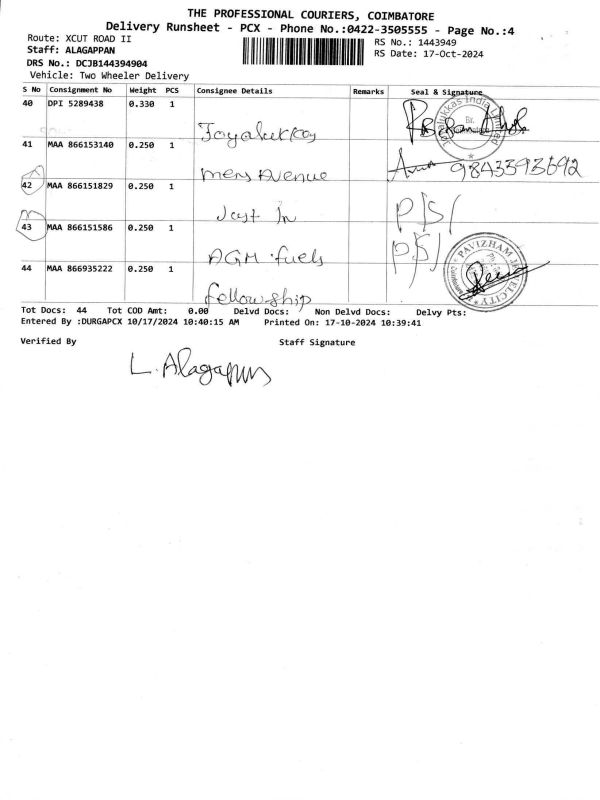 THE PROFESSIONAL COURIERS, COIMBATORE
Delivery Runsheet - PCX - Phone No.:0422-3505555 - Page No.:4
Route: XCUT ROAD II
RS No.: 1443949
Staff: ALAGAPPAN
RS Date: 17-Oct-2024
DRS No.: DCJB144394904
Vehicle: Two Wheeler Delivery
S No Consignment No Weight PCS Consignee Details Remarks Seal & Signature
40 DPI 5289438 0.330 1 Joyalukkas
41 MAA 866153140 0.250 1 Mens Avenue 9843393692
42 MAA 866151829 0.250 1 Just In P/S/
43 MAA 866151586 0.250 1 AGM fuels P/S/
44 MAA 866935222 0.250 1 fellowship PAVIZHAM
Tot Docs: 44 Tot COD Amt: 0.00 Delvd Docs: Non Delvd Docs: Delvy Pts:
Entered By :DURGAPCX 10/17/2024 10:40:15 AM Printed On: 17-10-2024 10:39:41
Verified By Staff Signature
L. Alagappan